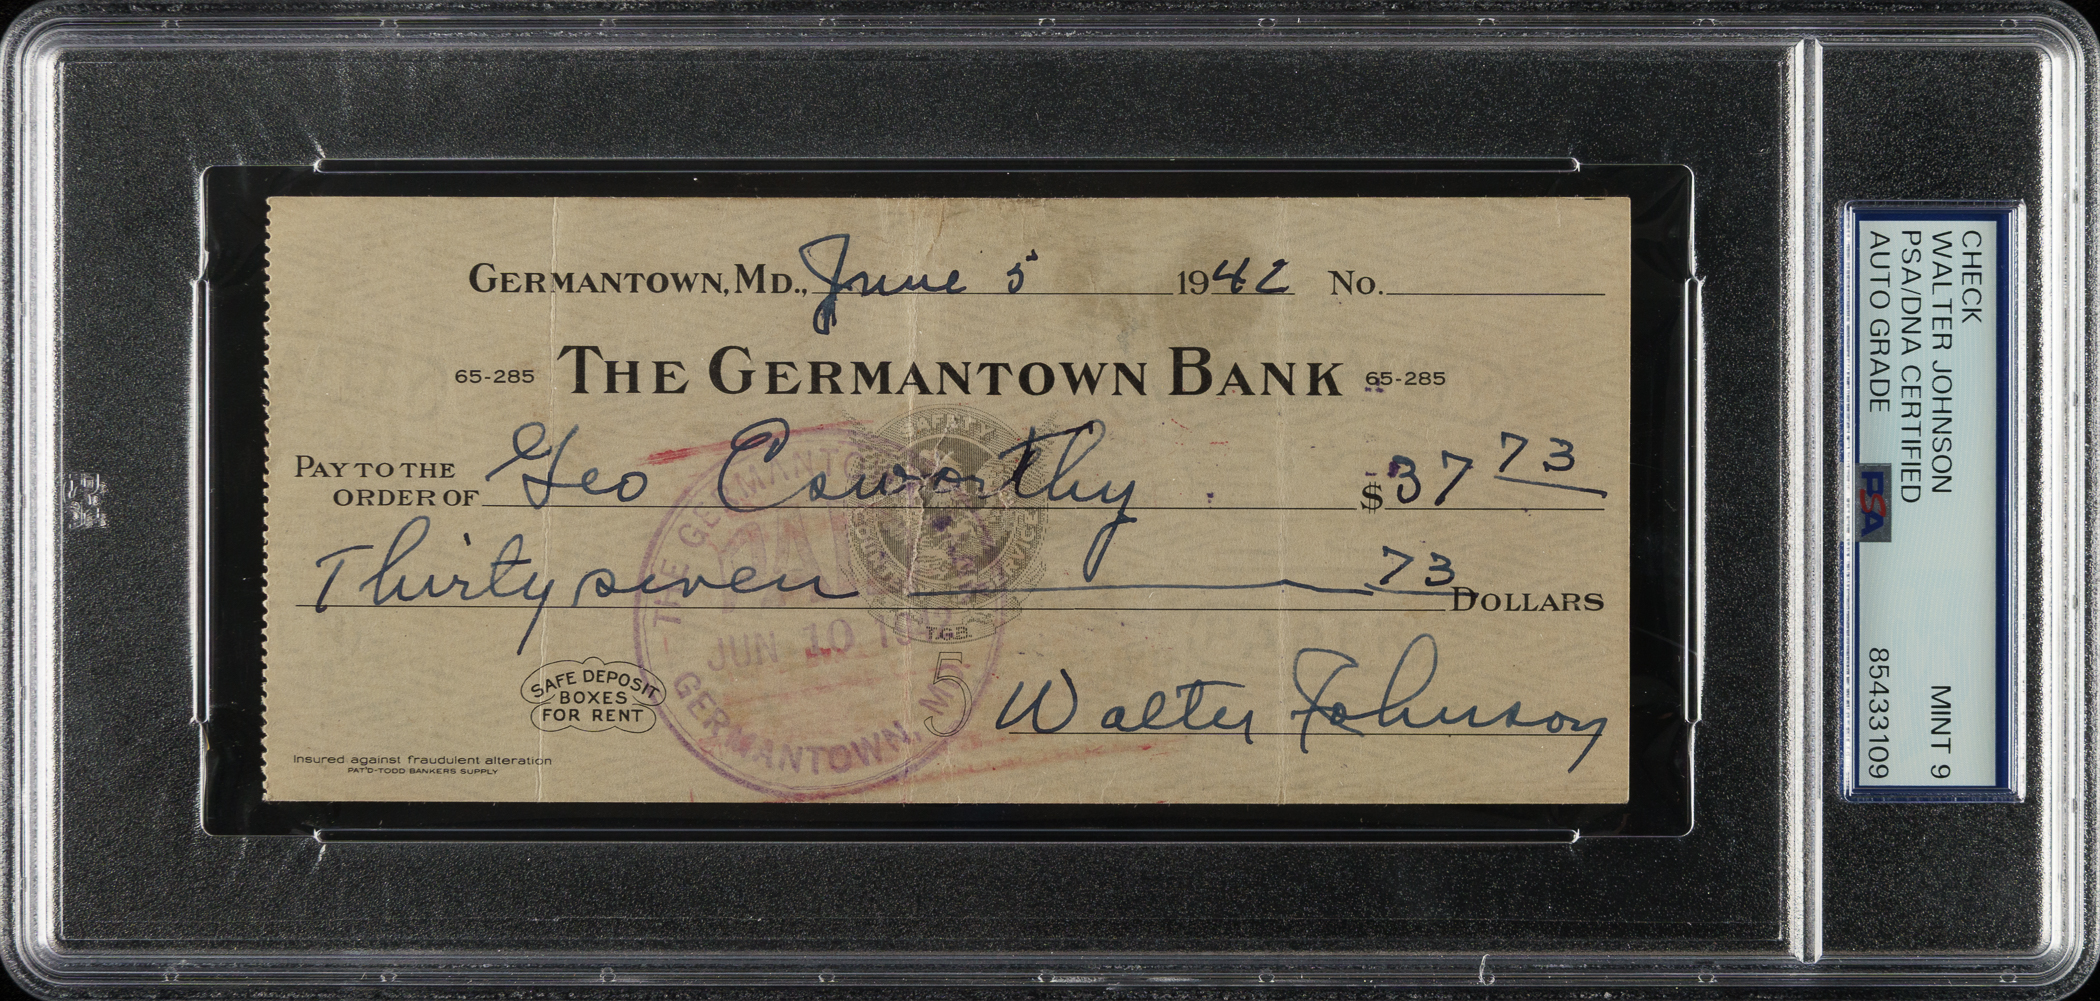 GERMANTOWN, MD., June 5 1942 No.
65-285 THE GERMANTOWN BANK 65-285
PAY TO THE ORDER OF Geo Cosworthy $37 73
Thirty seven 73 DOLLARS
SAFETY
SERVICE
T.G.B.
THE GERMANTOWN
PAID
JUN 10 19
GERMANTOWN, MD.
SAFE DEPOSIT
BOXES
FOR RENT
5
Walter Johnson
Insured against fraudulent alteration
PAT'D-TODD BANKERS SUPPLY
CHECK
WALTER JOHNSON MINT 9
PSA/DNA CERTIFIED
AUTO GRADE 85433109
PSA